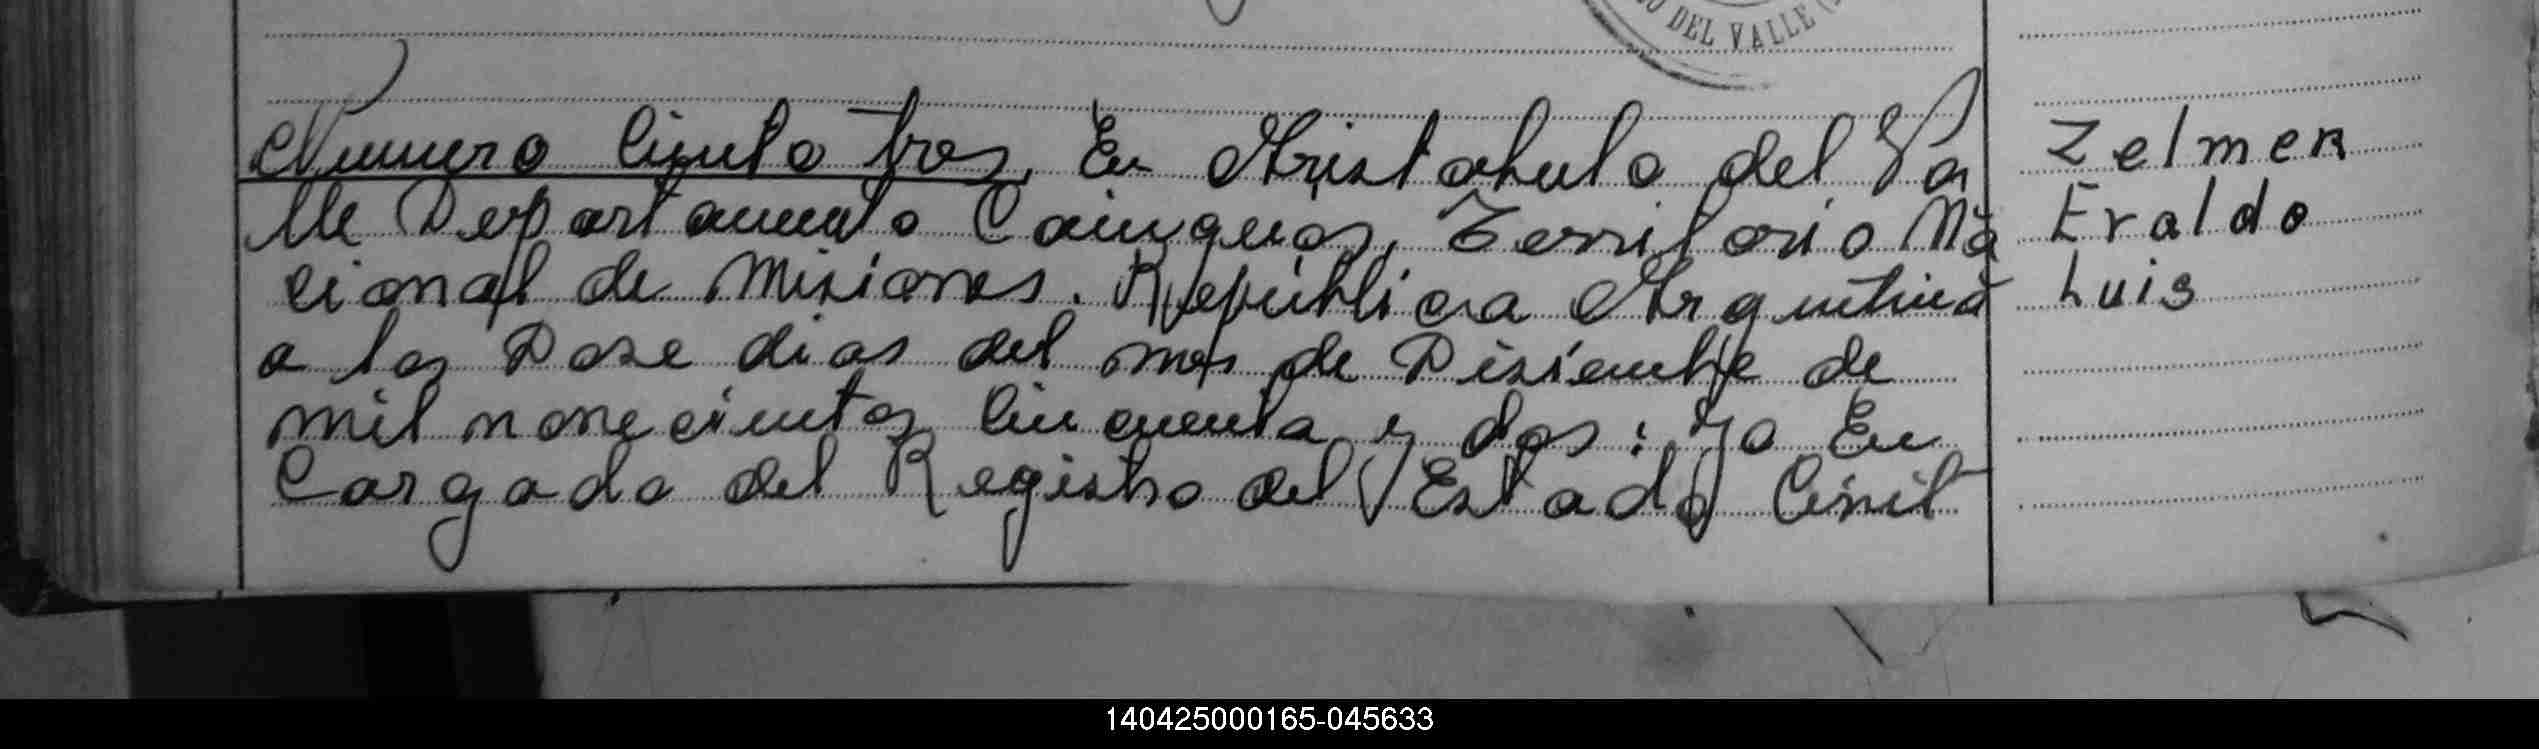 O DEL VALLE (
Numero Ciento tres, En Aristobulo del Va
lle Departamento Cainguas, Territorio Na
cional de Misiones. República Argentina
a los Dose dias del mes de Disiembre de
mil nonecientos Cincuenta y dos: Yo En
Cargado del Registro del Estado Civil
Zelmen
Eraldo
Luis
140425000165-045633